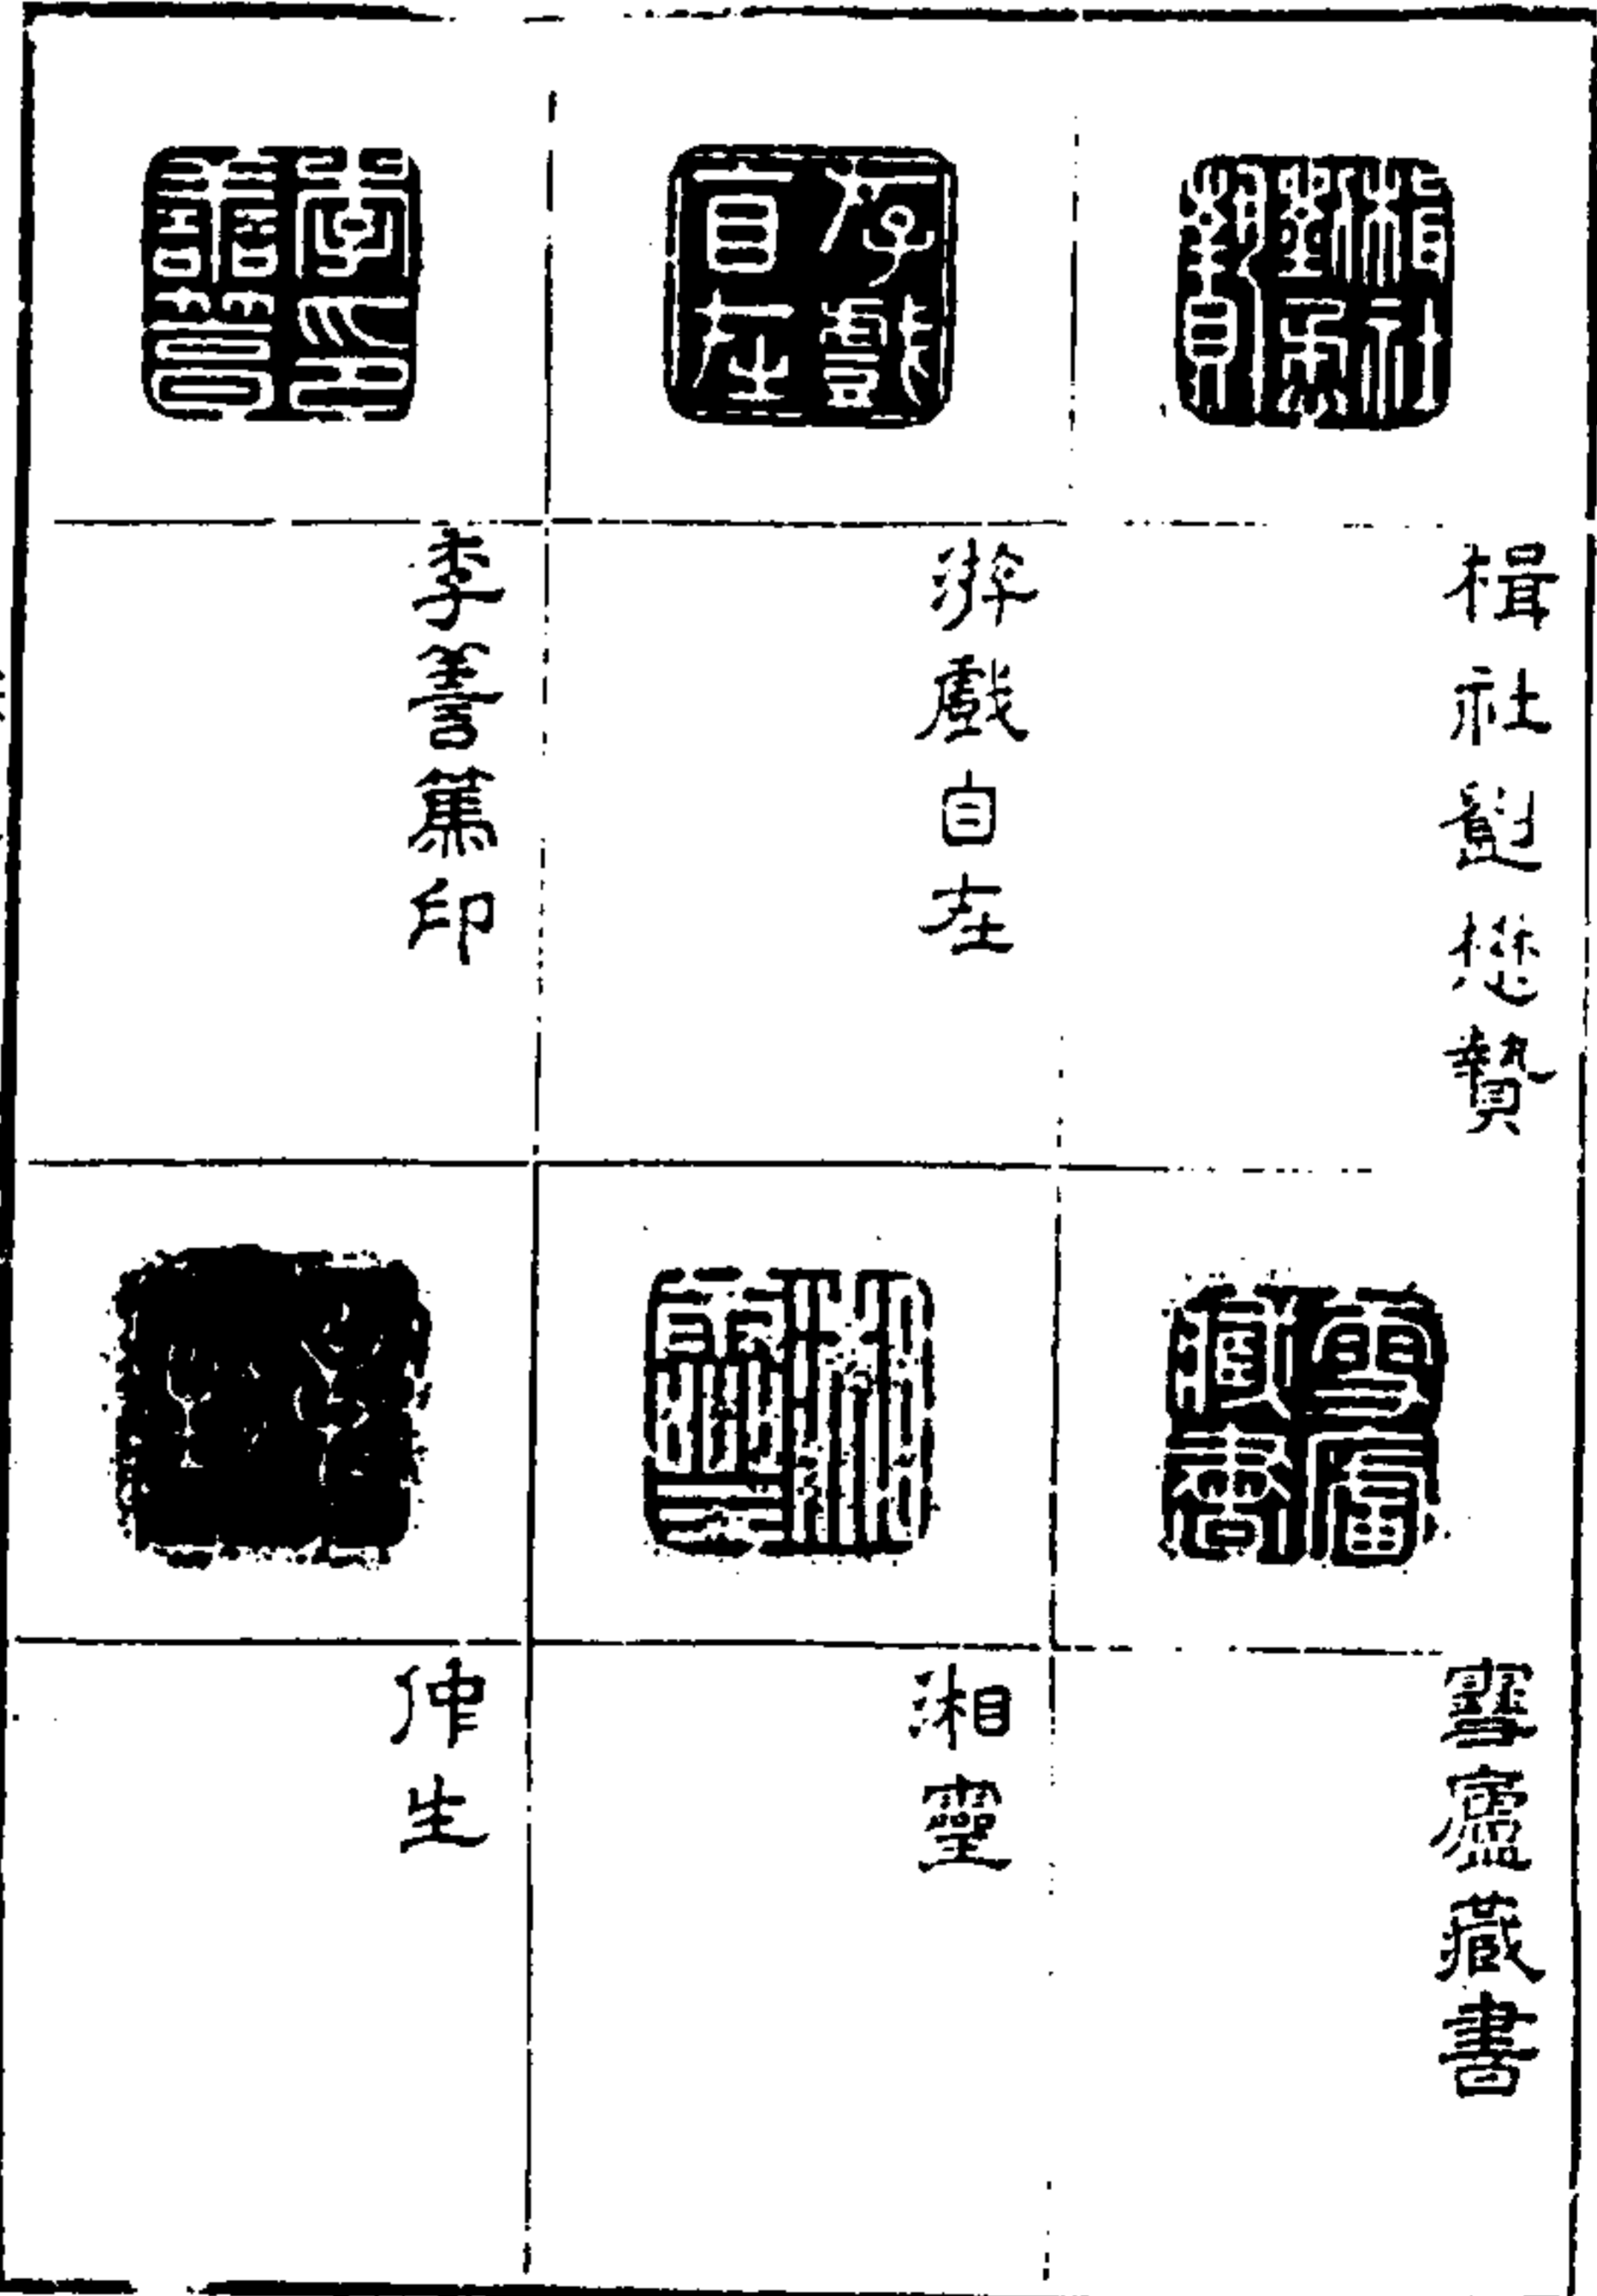 楫社劉懋贄
游戲自在
李善篤印
雪廬藏書
湘靈
生